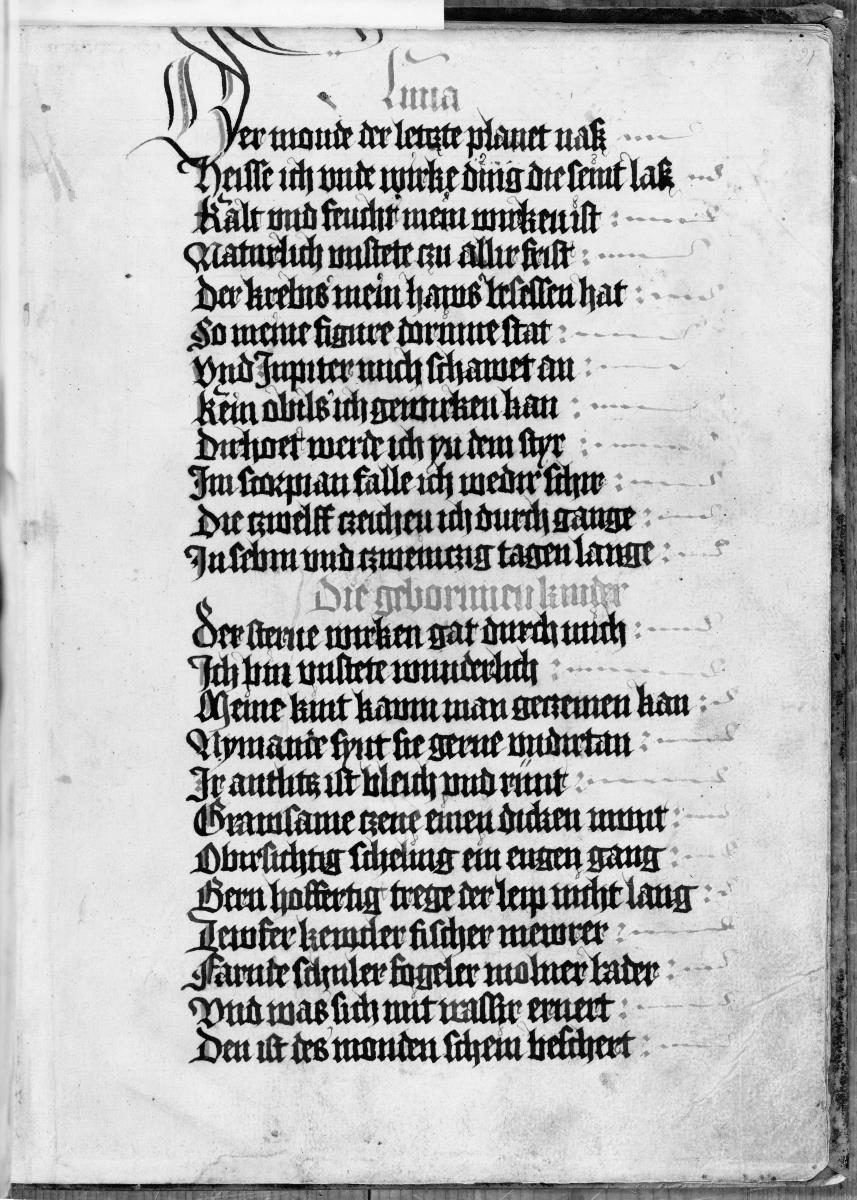 Luna
Der monde der letzte planet nasz
Heisse ich vnde wirke ding die seint lasz
Kalt vnd feucht mein wirken ist
Naturlich vnstete czu allir frist
Der krebis mein haws besessen hat
So meine figure dorinne stat
Vnd Jupiter mich schawet an
Kein obils ich gewirken kan
Dirhoet werde ich yn dem styr
Im scorpian falle ich wedir schir
Die czwelff czeichen ich durch gange
In sebin vnd czwenczig tagen lange
Die gebornnen kinder
Der sterne wirken gat durch mich
Ich bin vnstete wunderlich
Meine kint kawm man geczemen kan
Nymande synt sie gerne vndirtan
Ir antlitz ist bleich vnd runt
Grawsame czene einen dicken munt
Obirsichtig scheling ein eugen gang
Gern hoffertig trege der leip nicht lang
Lewfer kewcler fischer mewrer
Farnde schuler fogeler molner bader
Vnd was sich mit wassir ernert
Den ist des monden schein beschert